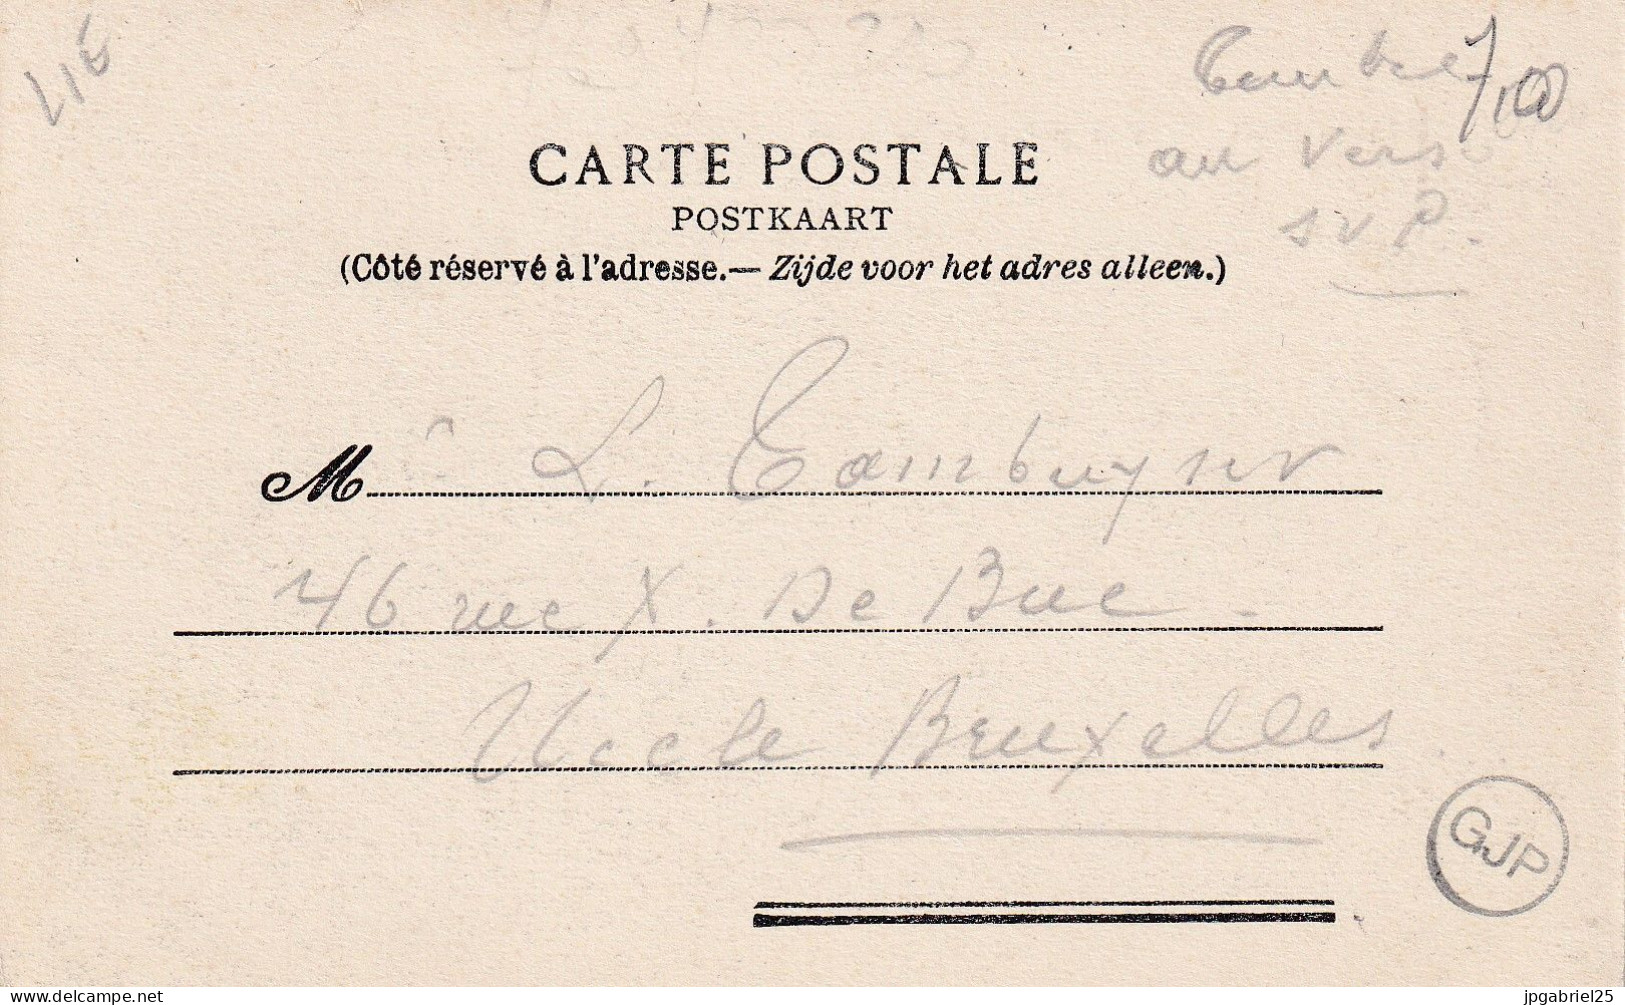 LIE
7,00
au verso
svP.
CARTE POSTALE
POSTKAART
(Côté réservé à l'adresse.— Zijde voor het adres alleen.)
M L. Tambuyser
46 rue X. De Bue -
Uccle Bruxelles.
GJP
delcampe.net
jpgabriel25